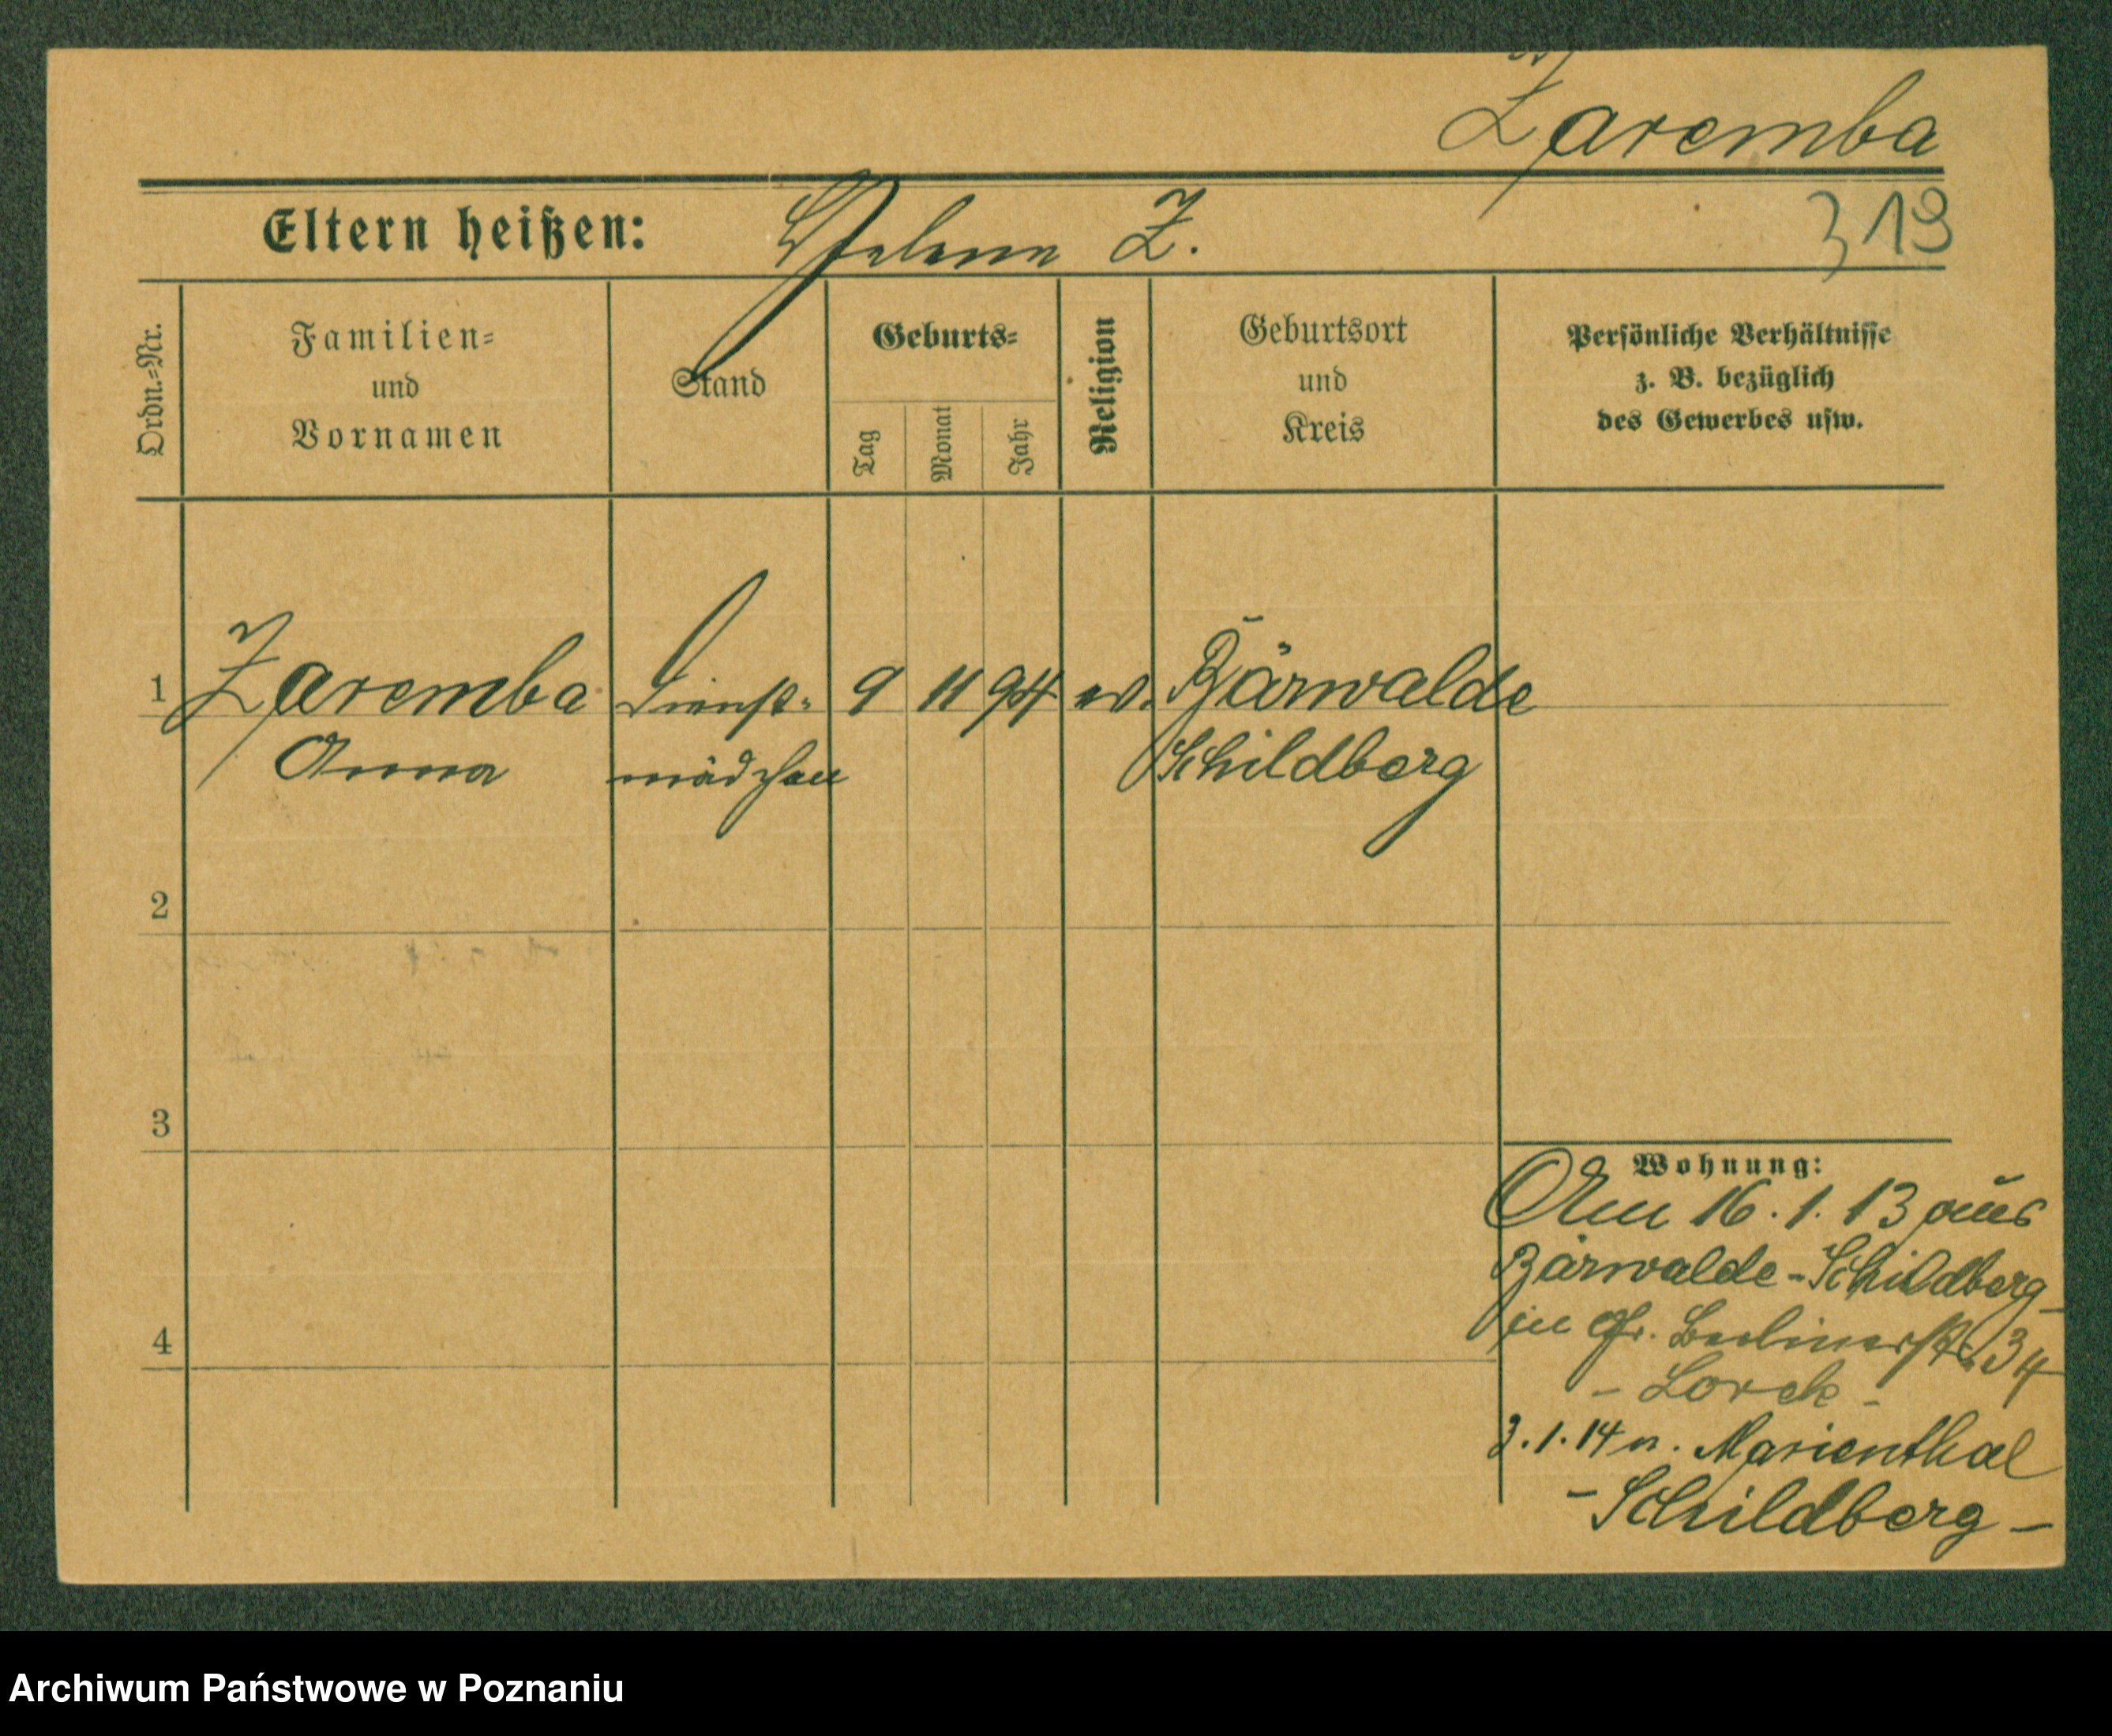 Zaremba
Eltern heißen: Helene Z.
319
Ordn.=Nr.
Familien=
und
Vornamen
Stand
Geburts=
Tag
Monat
Jahr
Religion
Geburtsort
und
Kreis
Persönliche Verhältnisse
z. B. bezüglich
des Gewerbes usw.
1 Zaremba Dienst= 9 11 94 ev. Bärwalde
Anna mädchen Schildberg
2
3
4
Wohnung:
Am 16.1.13 aus
Bärwalde - Schildberg -
in Gr. Berlinerstr. 34
- Lorck -
3.1.14 n. Marienthal
- Schildberg -
Archiwum Państwowe w Poznaniu